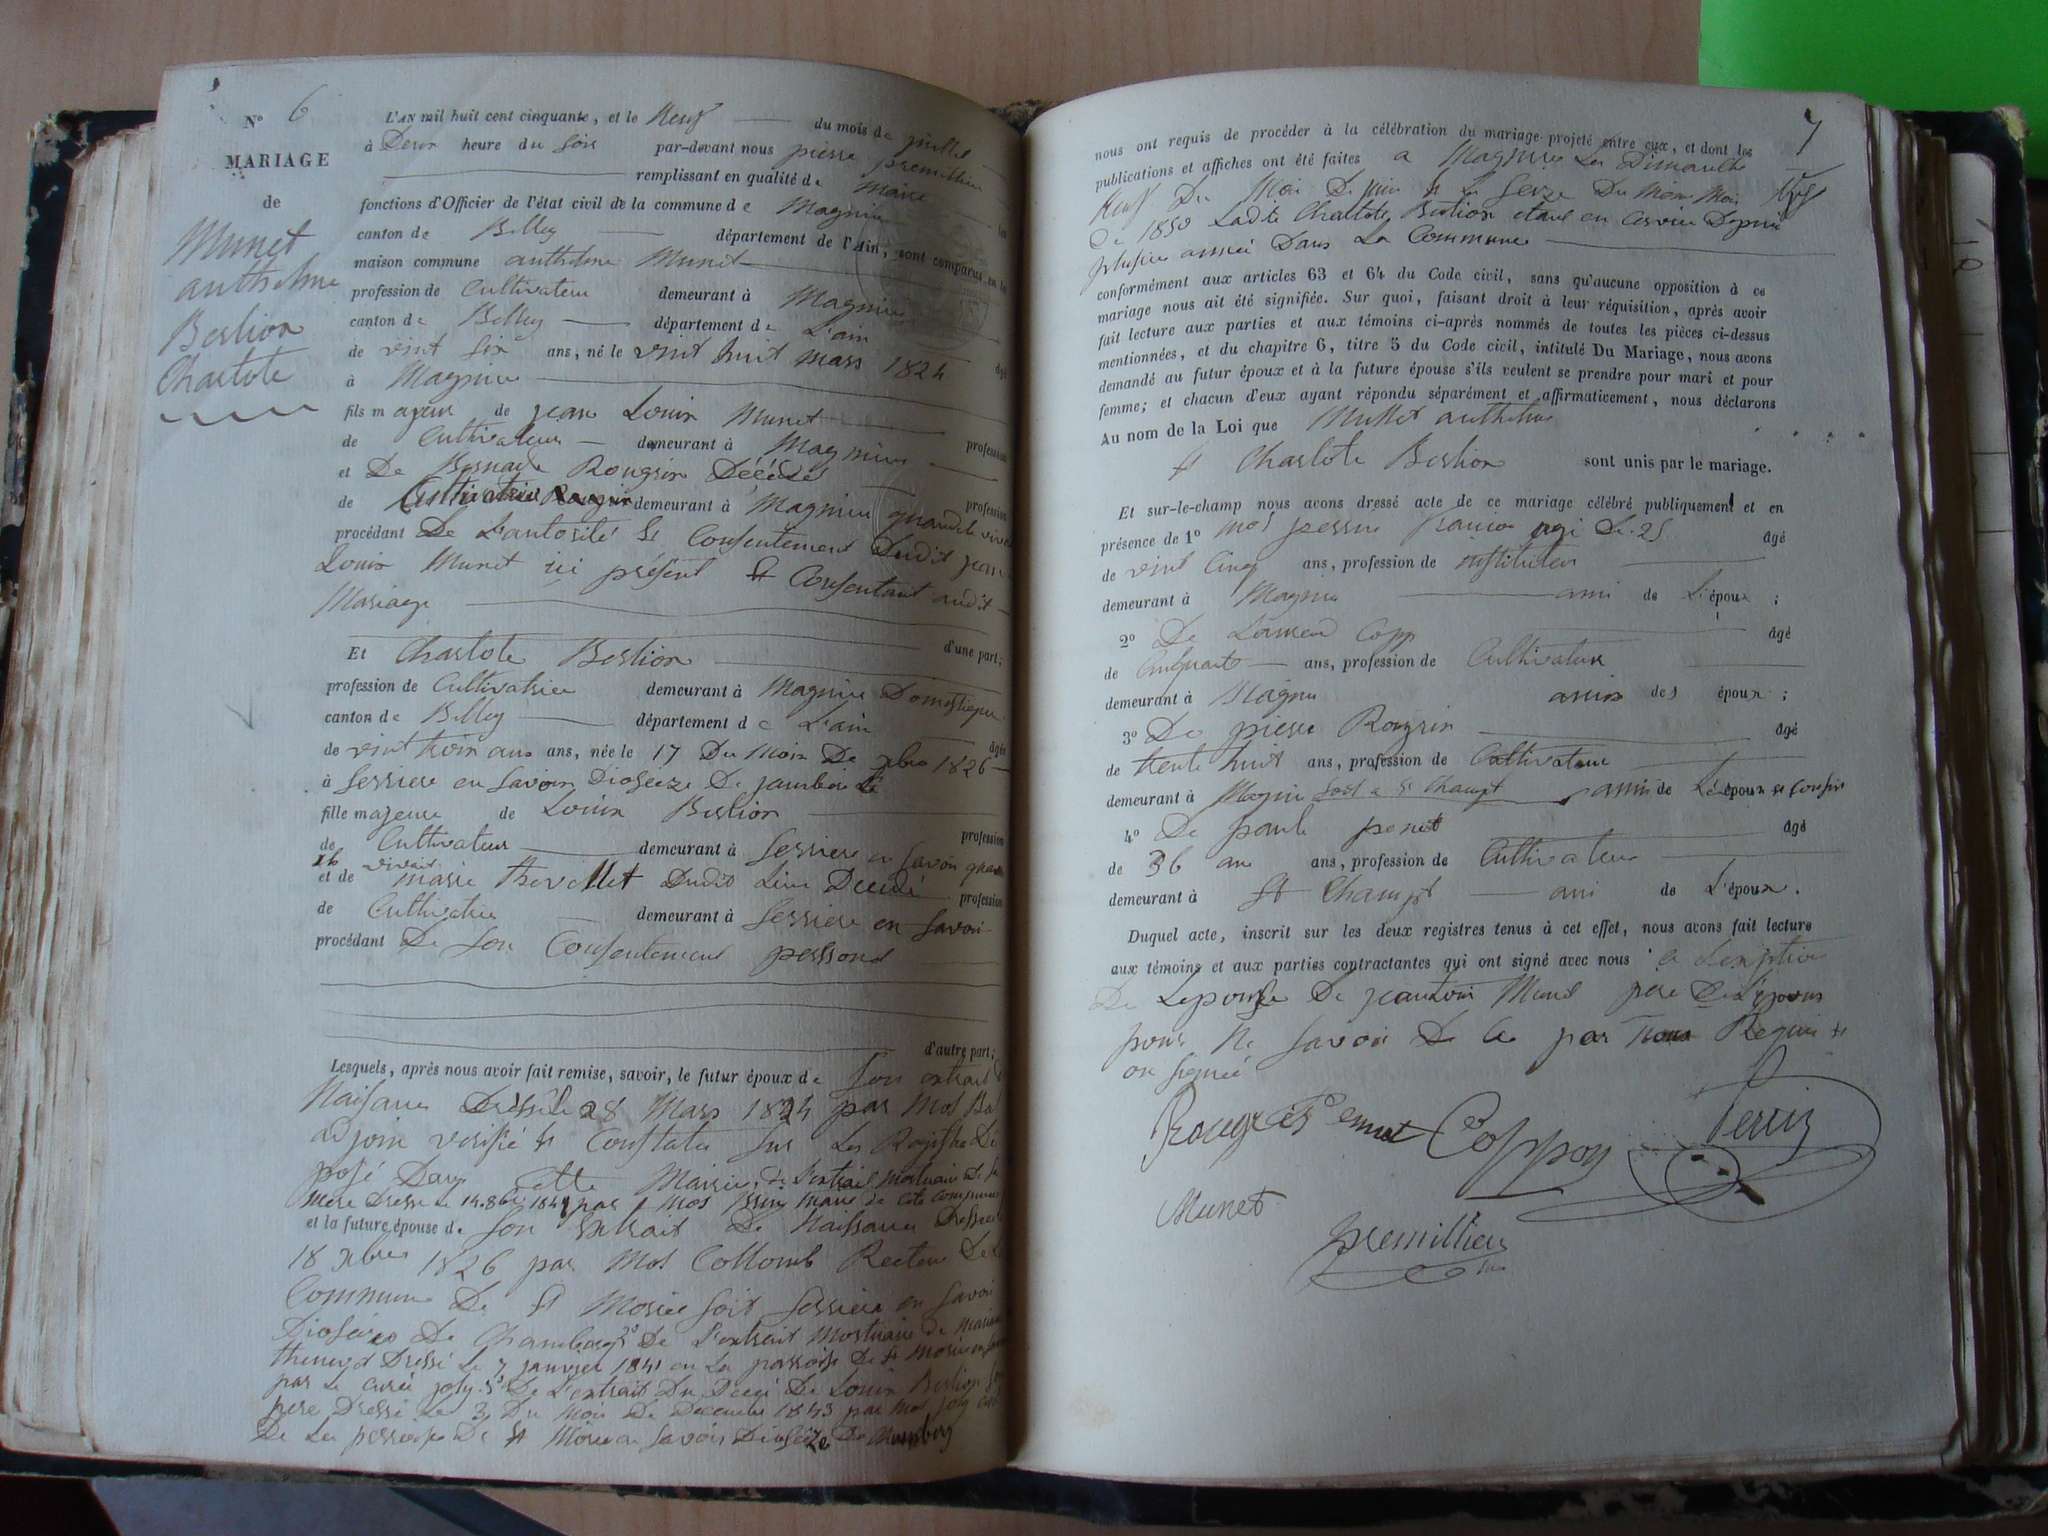 N° 6
MARIAGE
de
Munet
anthelme
Bestion
Charlote
L'AN mil huit cent cinquante, et le Neuf du mois de juillet
à Deux heure du soir par-devant nous pierre premillieu
remplissant en qualité de Maire
fonctions d'Officier de l'état civil de la commune de Magnieu
canton de Belley département de l'Ain, sont comparus en la
maison commune anthelme Munet
profession de Cultivateur demeurant à Magnieu
canton de Belley département de L'ain
de vint six ans, né le vint huit mars 1824 âgé
à Magnieu
fils majeur de jean Louis Munet
de Cultivateur demeurant à Magnieu profession
et De Rougsin Décédé
de Cultivatrice demeurant à Magnieu quand profession
procédant De L'autorité & Consentement Dudit jean
Louis Munet ici présent & Consentant audit
Mariage
Et Charlote Bestion d'une part;
profession de Cultivatrice demeurant à Magnieu Domestique
canton de Belley département de L'ain
de vint trois ans ans, née le 17 Du Mois De xbre 1826 âgée
à Serriere en Savoir Dioseze De
fille majeure de Louis Bestion
de Cultivateur demeurant à Serriere en Savoi profession
et de vivait marie Dudit Lieu Décédé profession
de Cultivatrice demeurant à Serriere en Savoi
procédant De son Consentement
d'autre part;
Lesquels, après nous avoir fait remise, savoir, le futur époux de Son extrait
Naissance Dressé le 28 Mars 1824 par Mos
adjoin verifié & Constaté sur Les Registre De
posé Dans cette Mairie, de L'extrait Mortuaire de
mere Dressé le 14. 1841 par Mos maire de cete commune
et la future épouse de Son Extrait De Naissance Dressé
18 xbre 1826 par Mos Collomb Recteur De
Commune De St Morice soit serriere en Savoi
Dioseze De Chambery 2° De L'extrait Mortuaire de
Dressé Le 7 janvier 1841 en La parroisse De St Morice
par Le curé joly 3° De L'extrait Du Deces De Louis Bestion
pere Dressé Le 3 Du Mois De Decembre 1843 par Mos joly
De La De St Morice en Savois Dioseze De
7
nous ont requis de procéder à la célébration du mariage projeté entre eux, et dont les
publications et affiches ont été faites a Magnieu Les Dimanche
Neuf Du Moi De juin & Le seize Du Meme Mois
De 1850 Ladite Charlote Bestion etant en Depuis
plusieur année Dans La Commune
conformément aux articles 63 et 64 du Code civil, sans qu'aucune opposition à ce
mariage nous ait été signifiée. Sur quoi, faisant droit à leur réquisition, après avoir
fait lecture aux parties et aux témoins ci-après nommés de toutes les pièces ci-dessus
mentionnées, et du chapitre 6, titre 5 du Code civil, intitulé Du Mariage, nous avons
demandé au futur époux et à la future épouse s'ils veulent se prendre pour mari et pour
femme; et chacun d'eux ayant répondu séparément et affirmativement, nous déclarons
Au nom de la Loi que Munet anthelme
& Charlote Bestion sont unis par le mariage.
Et sur-le-champ nous avons dressé acte de ce mariage célébré publiquement et en
présence de 1° Mos agé De 25 âgé
de vint Cinq ans, profession de instituteur
demeurant à Magnieu ami de L'époux ;
2° De Copp âgé
de Cinquante ans, profession de Cultivateur
demeurant à Magnieu amis des époux ;
3° De pierre Rougsin âgé
de trente huit ans, profession de Cultivateur
demeurant à Magnieu St Champt amis de L'époux & Cousin
4° De paul penet âgé
de 36 an ans, profession de Cultivateur
demeurant à St Champt ami de L'époux.
Duquel acte, inscrit sur les deux registres tenus à cet effet, nous avons fait lecture
aux témoins et aux parties contractantes qui ont signé avec nous a L'exeption
De Lepouse De jean Louis Munet pere De L'epoux
pour Ne Savoir De ce par nous Requis &
on signée
Coppon
Munet
premillieu